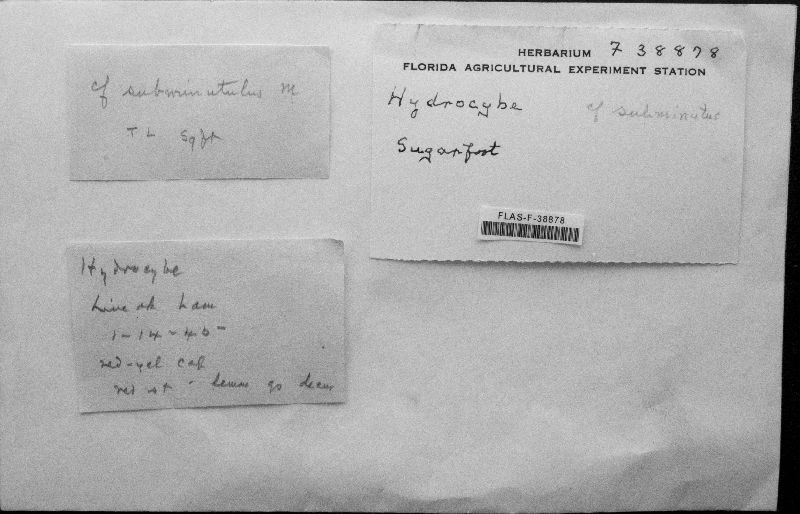 cf subminutulus M
T L Sqft
HERBARIUM F 38878
FLORIDA AGRICULTURAL EXPERIMENT STATION
Hydrocybe cf subminutus
Sugarfoot
FLAS-F-38878
Hydrocybe
Live oak ham
1-14-45
red-yel cap
red st - lemon gs decur